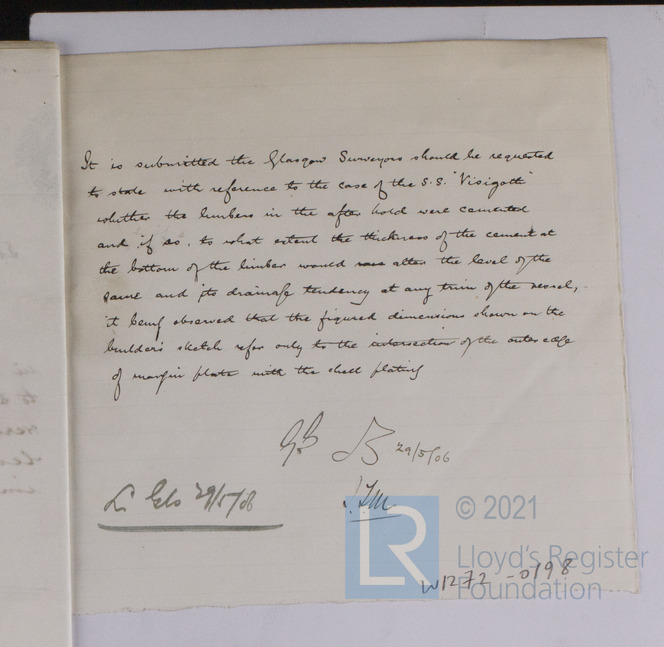 It is submitted the Glasgow Surveyors should be requested
to state with reference to the case of the S.S. "Visigoth"
whether the limbers in the after hold were cemented
and if so, to what extent the thickness of the cement at
the bottom of the limber would alter the level of the
same and its drainage tendency at any trim of the vessel,
it being observed that the figured dimensions shown on the
builder's sketch refer only to the intersection of the outer edge
of margin plate with the shell plating
29/5/06
Gls 29/5/06
LR
© 2021
Lloyd's Register
Foundation
W1272-0198